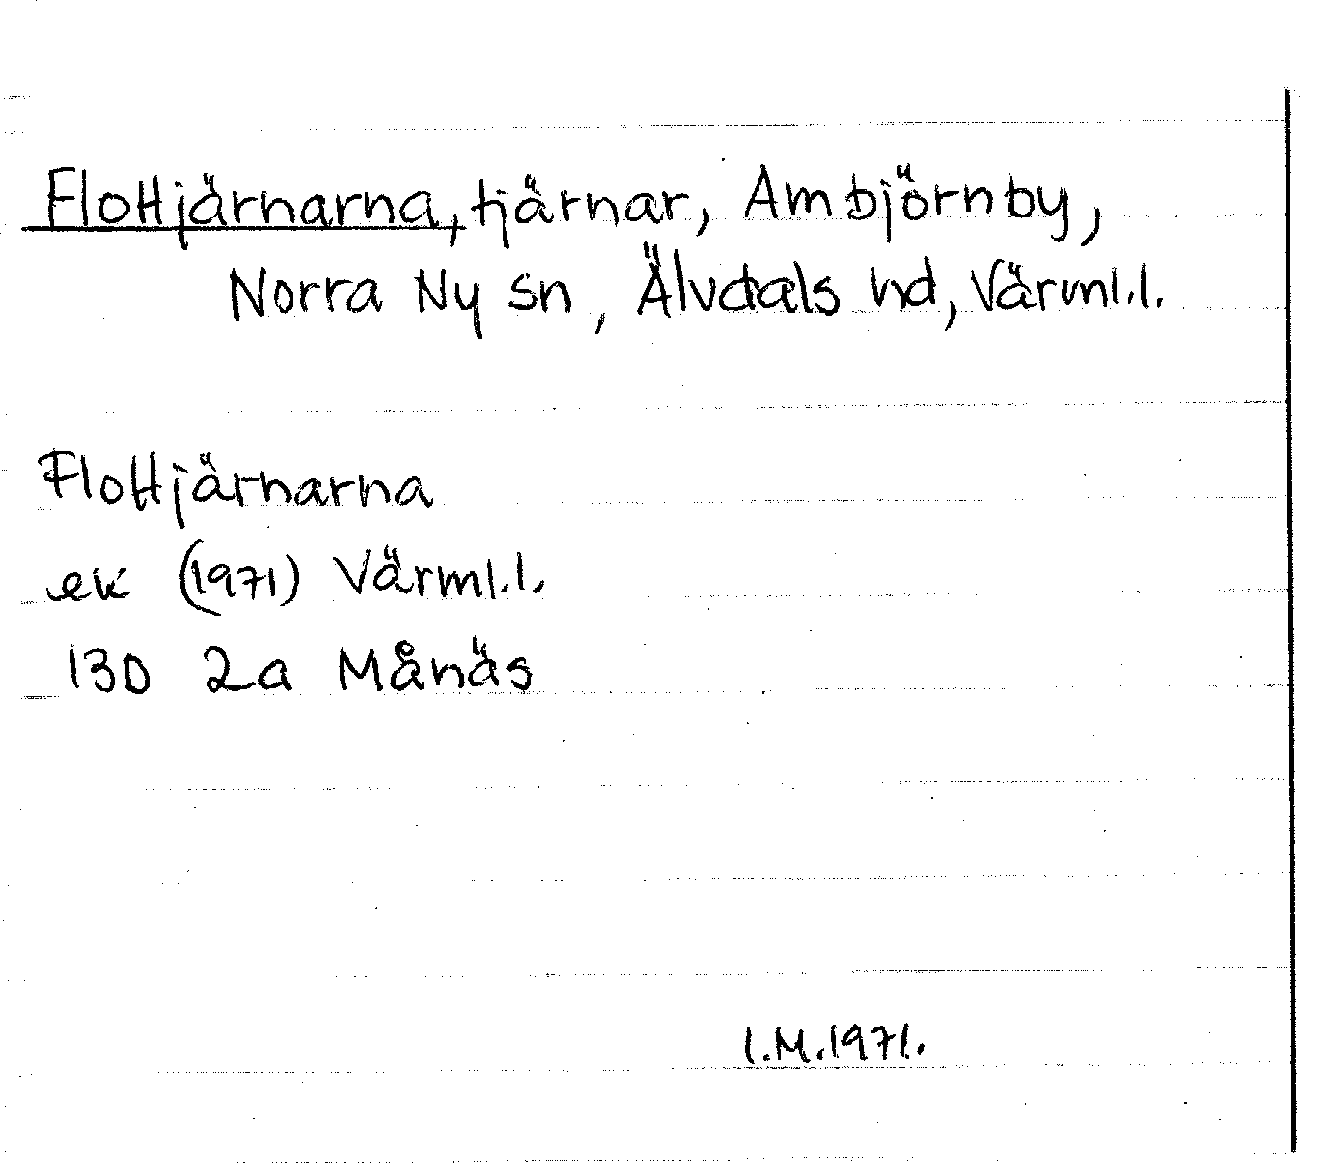 Flottjärnarna, tjärnar, Ambjörnby,
Norra Ny sn, Älvdals hd, Värml.l.
Flottjärnarna
ek (1971) Värml.l.
13D 2a Månäs
I.M.1971.